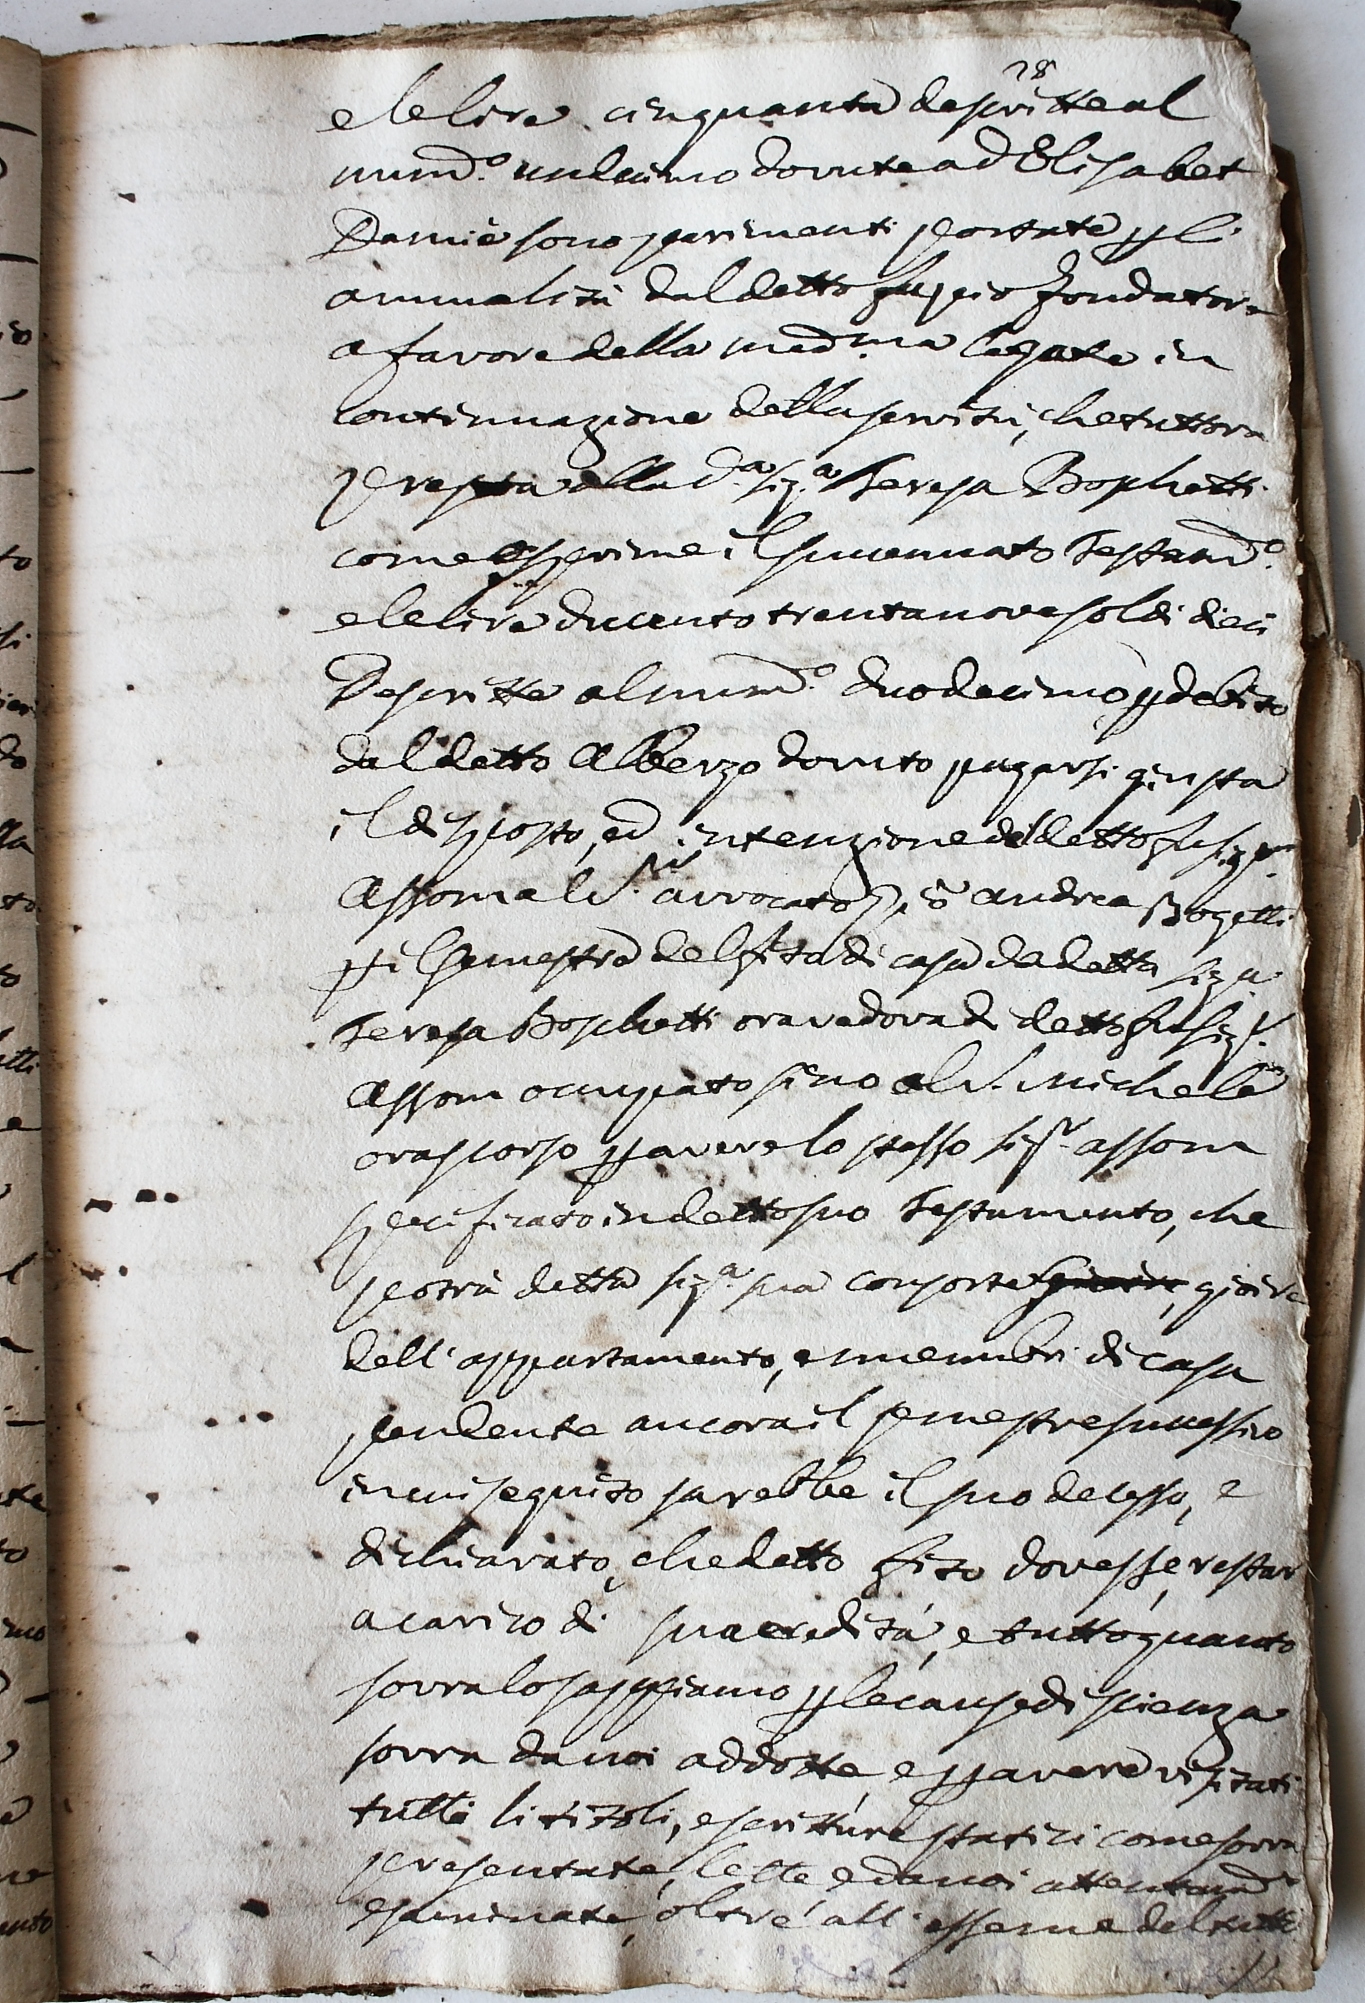 28
e le lire cinquanta descritte al
num.o undecimo dovute ad Elisabet
Damiè sono parimenti portate p li
annualità dal detto fu pio fondatore
a favore della med.ma legate in
continuazione della servitù, che tuttora
presta alla d.a sig.a Teresa Boschetti
come esprime il succennato Testam.o
e le lire ducento trentanove soldi dieci
Descritte al num.o duodecimo p debito
dal detto Albergo dovuto pagarsi giusta
il disposto, ed intenzione del detto fu sig.r
Assom al S.r avvocato Gio Andrea Bogetti
p il semestre del fito di casa da detta sig.a
Teresa Boschetti ora vedova di detto fu sig.r
Assom occupato sino al S. Michele
ora scorso p avere lo stesso sig.r Assom
specificato in detto suo Testamento, che
potrà detta sig.a sua consorte gioire
dell'appartamento, e membri di casa
pendente ancora il semestre successivo
in cui seguito sarebbe il suo decesso, e
dichiarato, che detto fito dovesse restar
a carico di sua eredità, e tutto quanto
sovra lo sappiamo p le cause di scienza
sovra da noi addotte, e p avere visitati
tutti li titoli, e scritture statici come sovra
presentate, lette e da noi attentam.e
esaminate, oltre all'essere del tutto